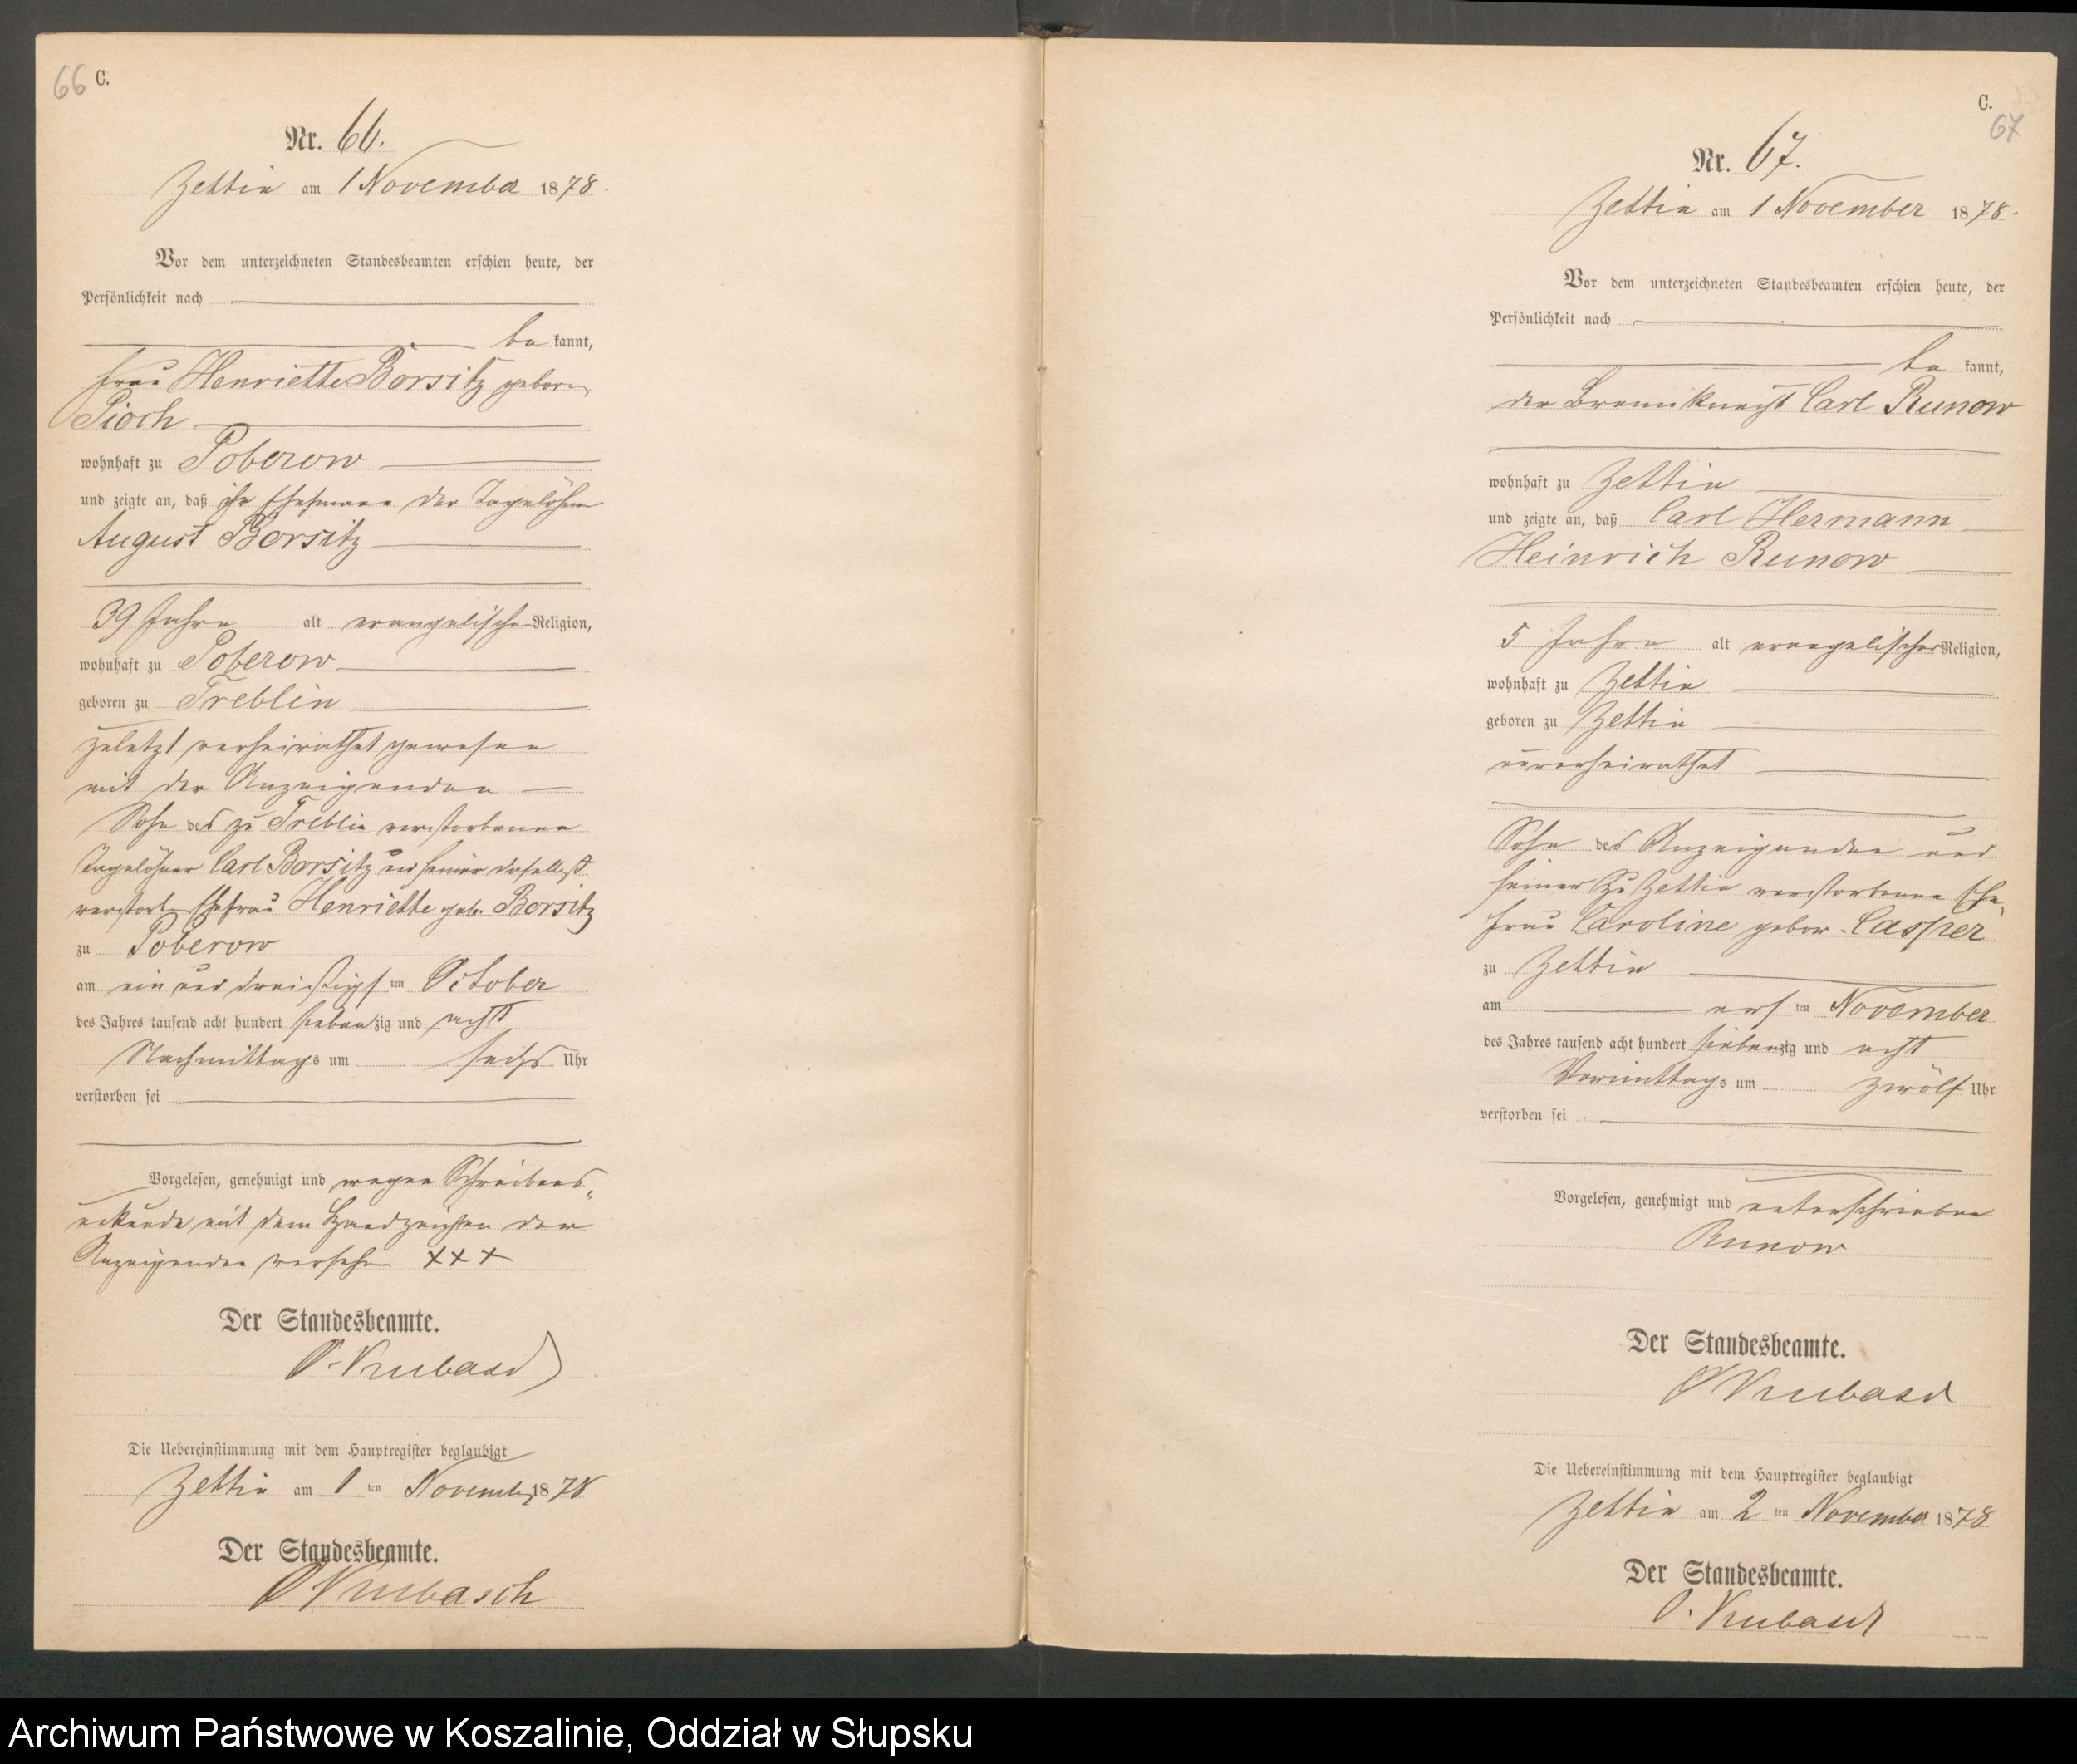 66 C.
Nr. 66.
Zettin am 1 November 1878.
Vor dem unterzeichneten Standesbeamten erschien heute, der
Persönlichkeit nach
be kannt,
Frau Henriette Borsitz geboren
Pioch
wohnhaft zu Poberow
und zeigte an, daß ihr Ehemann der Tagelöhner
August Borsitz
39 Jahre alt evangelischer Religion,
wohnhaft zu Poberow
geboren zu Treblin
zuletzt verheirathet gewesen
mit der Anzeigenden
Sohn des zu Treblin verstorbenen
Tagelöhner Carl Borsitz und seiner daselbst
verstorb. Ehefrau Henriette geb. Borsitz
zu Poberow
am ein und dreißigsten October
des Jahres tausend acht hundert siebenzig und acht
Nachmittags um sechs Uhr
verstorben sei
Vorgelesen, genehmigt und wegen Schreibens
unkunde mit dem Handzeichen der
Anzeigenden versehen +++
Der Standesbeamte.
Die Uebereinstimmung mit dem Hauptregister beglaubigt
Zettin am 1 ten November 1878
Der Standesbeamte.
C.
67
Nr. 67.
Zettin am 1 November 1878.
Vor dem unterzeichneten Standesbeamten erschien heute, der
Persönlichkeit nach
be kannt,
der Brennknecht Carl Runow
wohnhaft zu Zettin
und zeigte an, daß Carl Hermann
Heinrich Runow
5 Jahre alt evangelischer Religion,
wohnhaft zu Zettin
geboren zu Zettin
unverheirathet
Sohn des Anzeigenden und
seiner zu Zettin verstorbenen Ehe
frau Caroline gebor. Casper
zu Zettin
am ersten November
des Jahres tausend acht hundert siebenzig und acht
Vormittags um zwölf Uhr
verstorben sei
Vorgelesen, genehmigt und unterschrieben
Runow
Der Standesbeamte.
Die Uebereinstimmung mit dem Hauptregister beglaubigt
Zettin am 2 ten November 1878
Der Standesbeamte.
Archiwum Państwowe w Koszalinie, Oddział w Słupsku